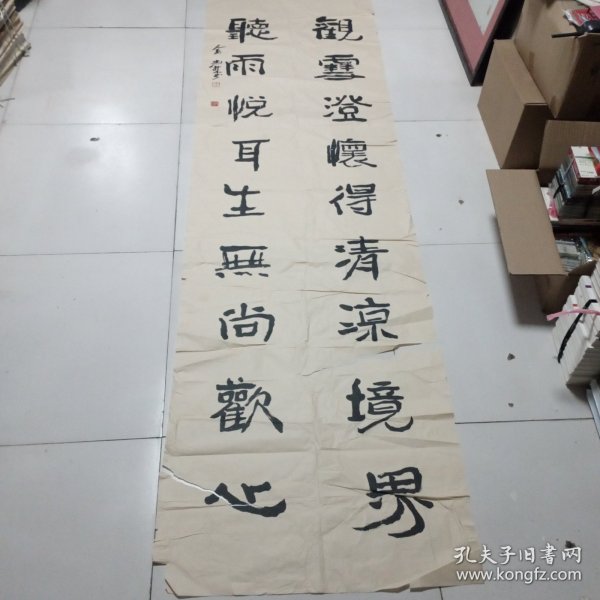 觀雪澄懷得清涼境界
聽雨悦耳生無尚歡心
孔夫子旧書网
www.kongfz.com